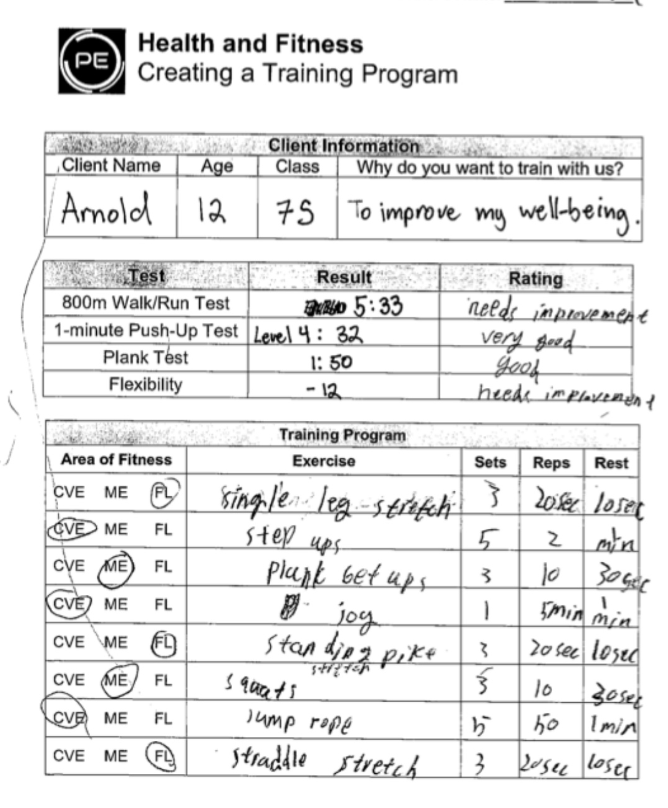 PE
Health and Fitness
Creating a Training Program
Client Information
Client Name Age Class Why do you want to train with us?
Arnold 12 7S To improve my well-being.
Test Result Rating
800m Walk/Run Test 5:33 needs improvement
1-minute Push-Up Test Level 4: 32 very good
Plank Test 1:50 good
Flexibility -12 needs improvement
Training Program
Area of Fitness Exercise Sets Reps Rest
CVE ME FL single leg stretch 3 20sec 10sec
CVE ME FL step ups 5 2 min
CVE ME FL plank get ups 3 10 30sec
CVE ME FL jog 1 5min 1 min
CVE ME FL standing pike stretch 3 20sec 10sec
CVE ME FL squats 3 10 30sec
CVE ME FL jump rope 5 50 1min
CVE ME FL straddle stretch 3 20sec 10sec